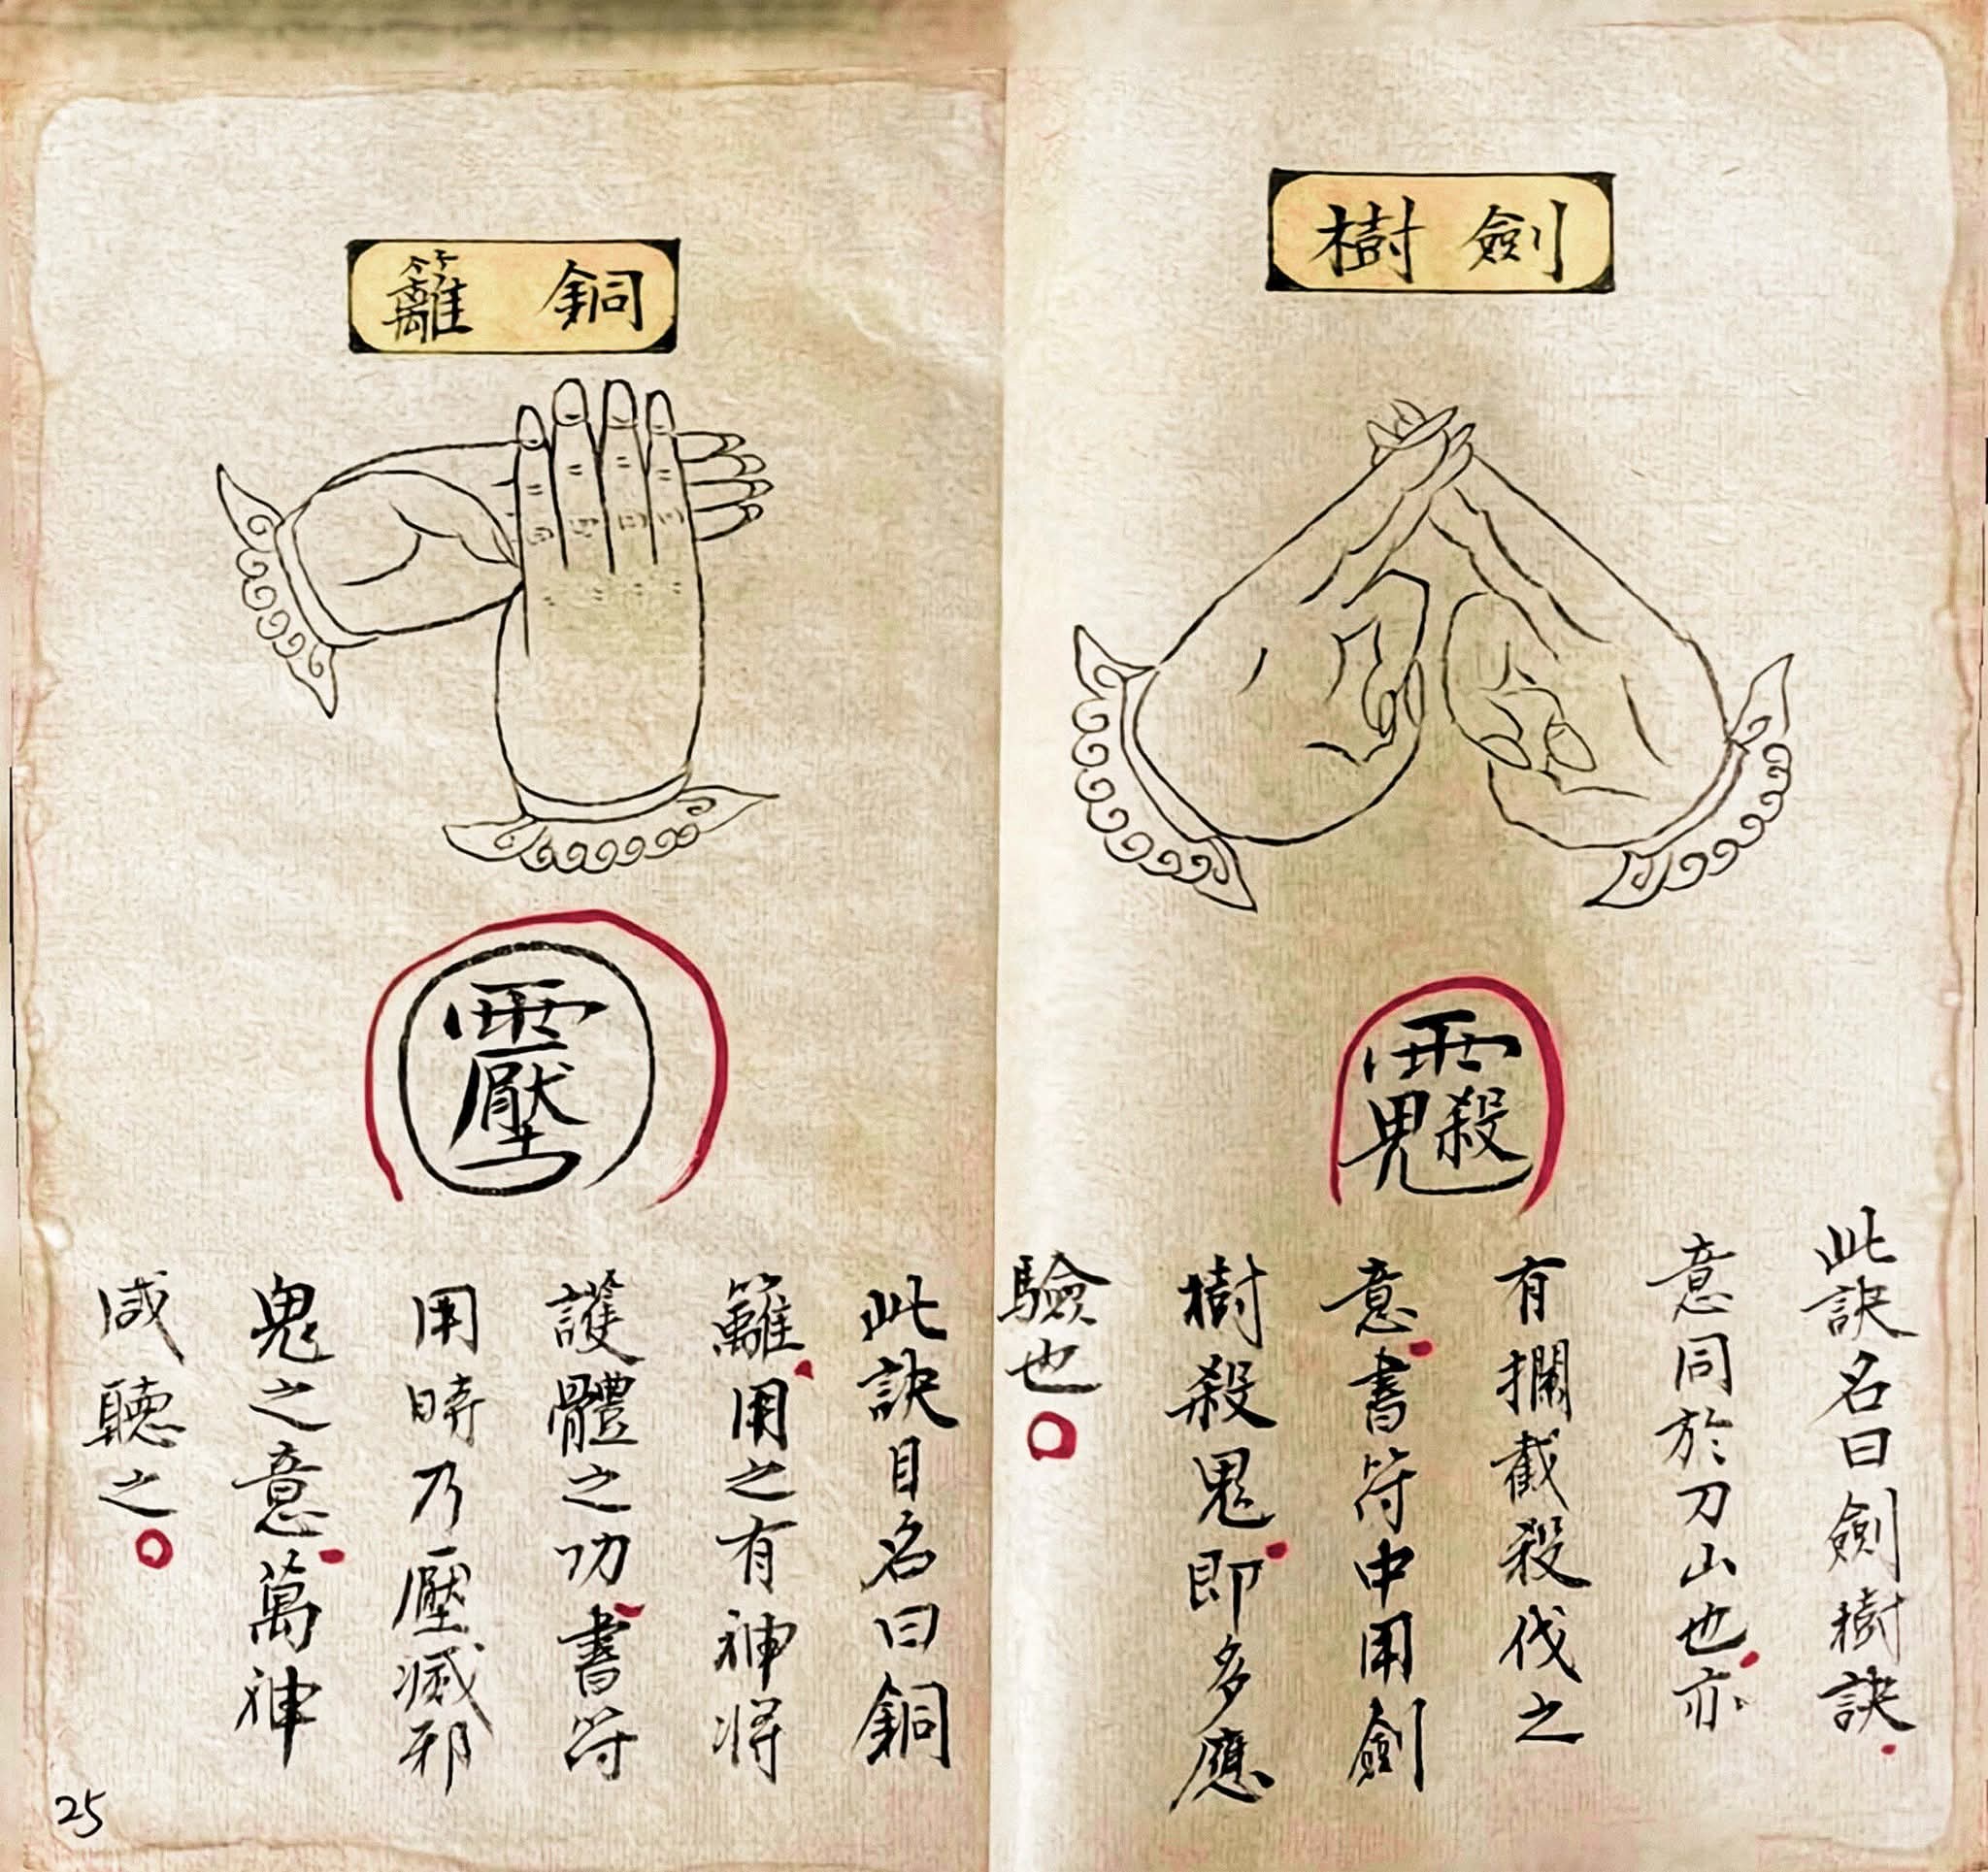 劍樹
此訣名曰劍樹訣
意同於刀山也亦
有攔截殺伐之
意書符中用劍
樹殺鬼即多應
驗也
銅籬
此訣目名曰銅
籬用之有神將
護體之功書符
用時乃壓滅邪
鬼之意萬神
咸聽之
25